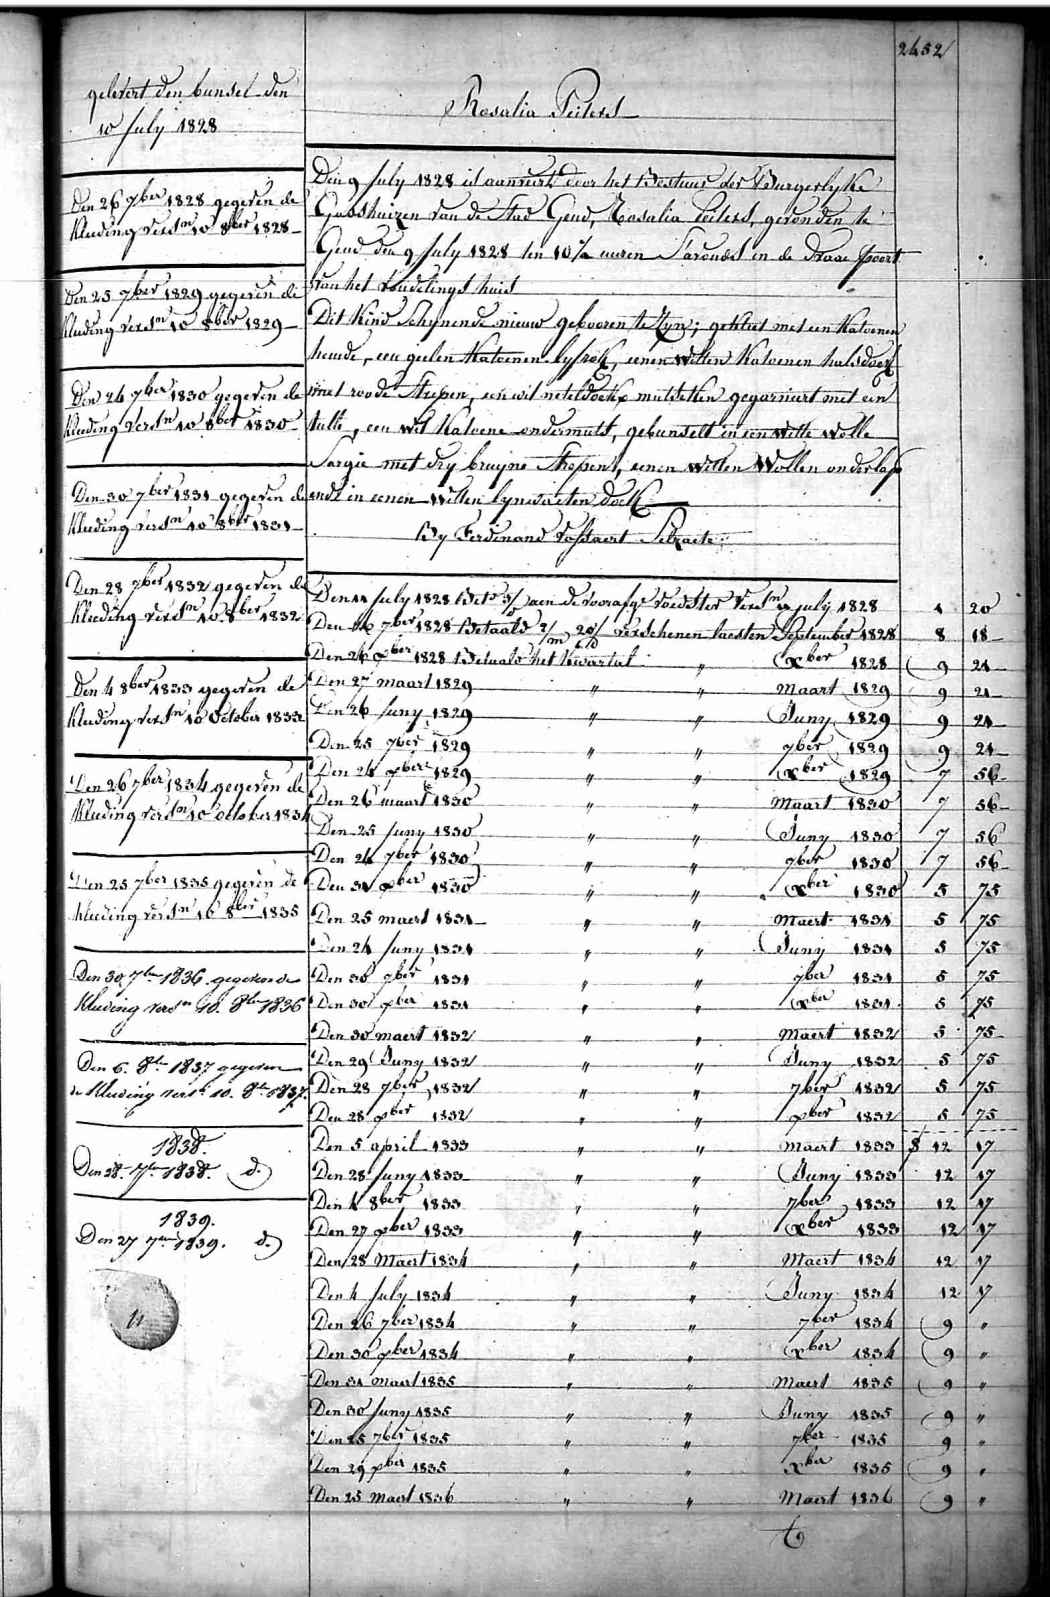 2452
gelevert den bunsel den
10 July 1828
Rosalia Peiters
Den 26 7ber 1828 gegeven de
kleding versn 10 8ber 1828
Den 25 7ber 1829 gegeven de
kleding versn 10 8ber 1829
Den 24 7ber 1830 gegeven de
kleding versn 10 8ber 1830
Den 30 7ber 1831 gegeven de
kleding versn 10 8ber 1831
Den 28 7ber 1832 gegeven de
kleding versn 10 8ber 1832
Den 4 8ber 1833 gegeven de
kleding versn 10 October 1833
Den 26 7ber 1834 gegeven de
kleding versn 10 october 1834
Den 25 7ber 1835 gegeven de
kleding versn 10 8ber 1835
Den 30 7ber 1836 gegeven de
kleding versn 10. 8ber 1836
Den 6. 8br 1837 gegeven
de kleding versn 10. 8br 1837.
1838.
Den 28. 7br 1838. d.)
1839.
Den 27 7br 1839. d.)
Den 9 July 1828 is aenveirt door het Bestuur der Burgerlyke
Godshuizen van de Stad Gend, Rosalia Peiters, gevonden te
Gend den 9 July 1828 ten 10½ uuren s'avonds in de Draae poort
van het vondelings huis
Dit kind schynende nieuw gebooren te zyn; gekleet met een katoenen
hemde, een geelen katoenen lyfrok, eenen witten katoenen halsdoek
met roode strepen, een wit neteldoekx mutseken gegarniert met een
tulle, een wit katoene ondermuts, gebunselt in een witte wolle
Sargie met dry bruyne strepen, eenen witten wollen onderlap
ende in eenen witten lynwaeten doek
By Ferdinand Vostaert Selzaete
Den 11 July 1828 Bet aen de voorafge voedster versn July 1828 1 20
Den 7ber 1828 Betaald verschenen laesten September 1828 8 18
Den 24 xber 1828 Betaald het kwartal " xber 1828 9 21
Den 27 maart 1829 " " Maart 1829 9 21
Den 26 Juny 1829 " " Juny 1829 9 21
Den 25 7ber 1829 " " 7ber 1829 9 21
Den 24 xber 1829 " " xber 1829 7 56
Den 26 maart 1830 " " Maart 1830 7 56
Den 25 Juny 1830 " " Juny 1830 7 56
Den 24 7ber 1830 " " 7ber 1830 7 56
Den 31 xber 1830 " " xber 1830 5 75
Den 25 maert 1831 " " Maert 1831 5 75
Den 24 Juny 1831 " " Juny 1831 5 75
Den 30 7ber 1831 " " 7ber 1831 5 75
Den 30 xber 1831 " " xber 1831 5 75
Den 30 maert 1832 " " Maert 1832 5 75
Den 29 Juny 1832 " " Juny 1832 5 75
Den 28 7ber 1832 " " 7ber 1832 5 75
Den 28 xber 1832 " " xber 1832 5 75
Den 5 april 1833 " " Maert 1833 f 12 17
Den 28 Juny 1833 " " Juny 1833 12 17
Den 4 8ber 1833 " " 7ber 1833 12 17
Den 27 xber 1833 " " xber 1833 12 17
Den 28 Maert 1834 " " Maert 1834 12 17
Den 4 July 1834 " " Juny 1834 12 17
Den 26 7ber 1834 " " 7ber 1834 9 "
Den 30 xber 1834 " " xber 1834 9 "
Den 31 maert 1835 " " Maert 1835 9 "
Den 30 Juny 1835 " " Juny 1835 9 "
Den 25 7ber 1835 " " 7ber 1835 9 "
Den 29 xber 1835 " " xber 1835 9 "
Den 25 Maert 1836 " " Maert 1836 9 "